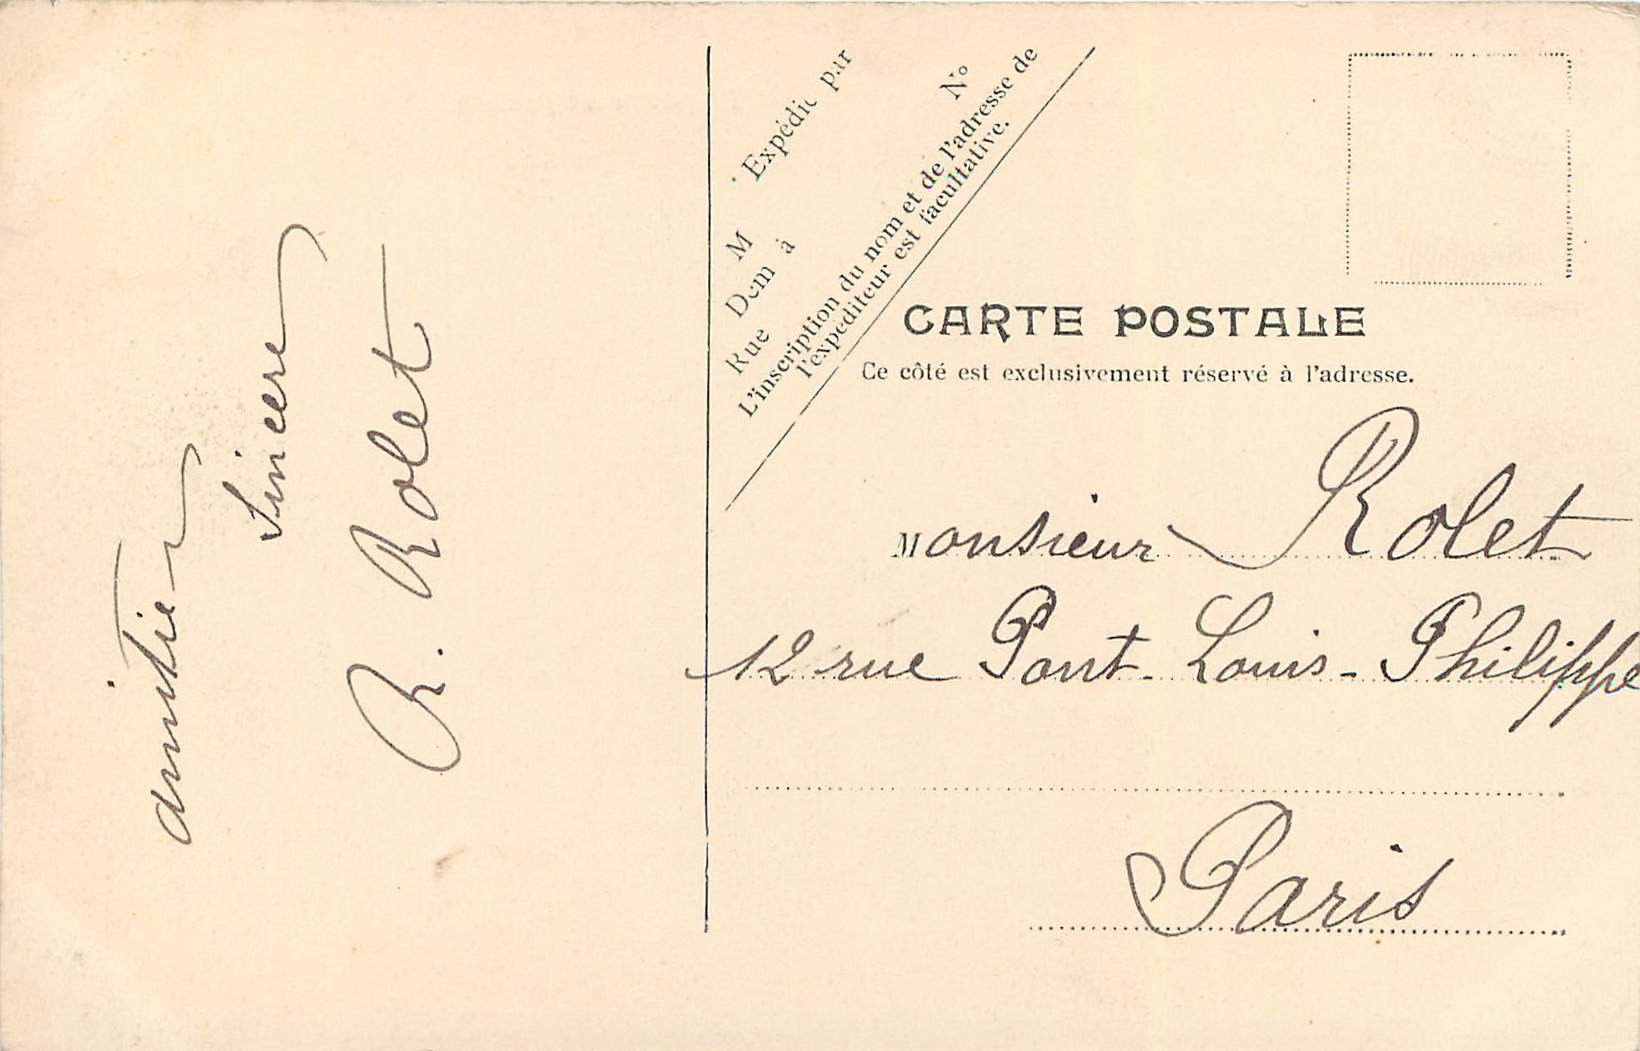 amitié
Sincère
R. Rolet
Expédié par
M
Dem à
Rue
N°
L'inscription du nom et de l'adresse de
l'expéditeur est facultative.
CARTE POSTALE
Ce côté est exclusivement réservé à l'adresse.
Monsieur Rolet
12 rue Pont-Louis-Philippe
Paris